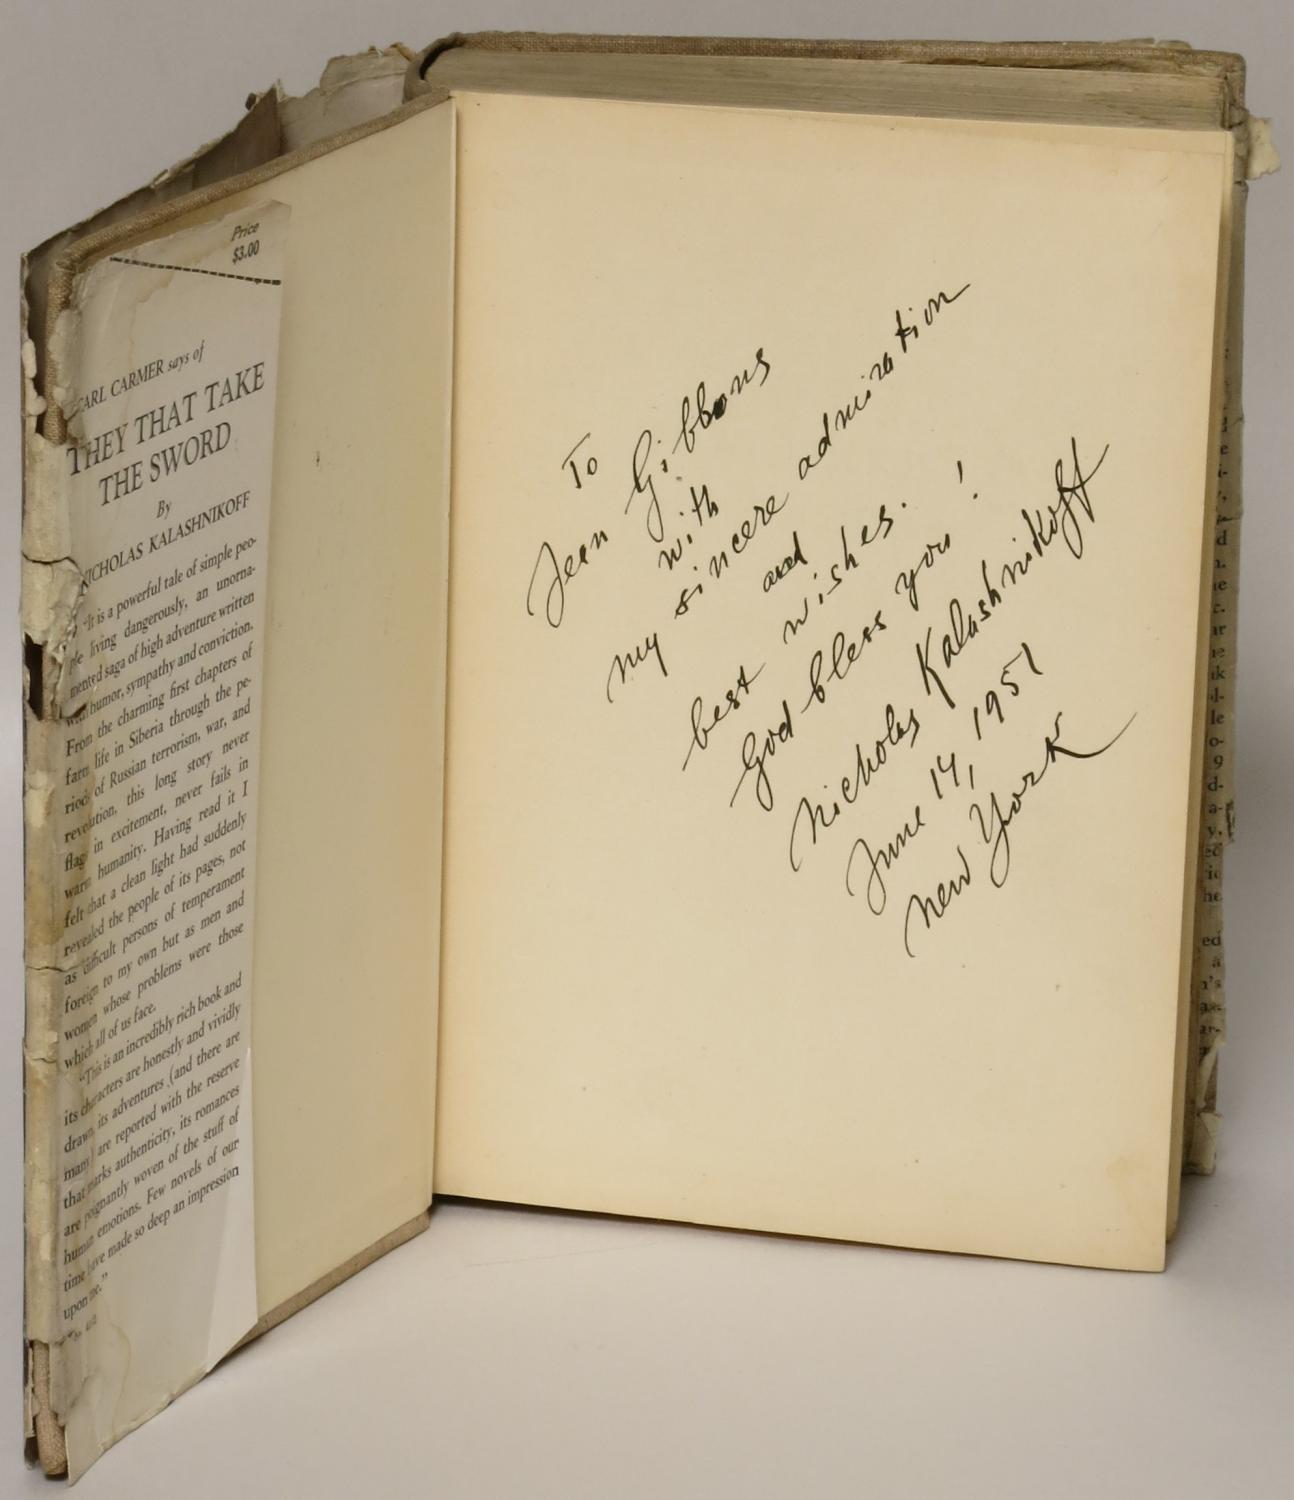 Price
$3.00
CARL CARMER says of
THEY THAT TAKE
THE SWORD
By
NICHOLAS KALASHNIKOFF
"It is a powerful tale of simple peo-
ple living dangerously, an unorna-
mented saga of high adventure written
with humor, sympathy and conviction.
From the charming first chapters of
farm life in Siberia through the pe-
riods of Russian terrorism, war, and
revolution, this long story never
flags in excitement, never fails in
warm humanity. Having read it I
felt that a clean light had suddenly
revealed the people of its pages, not
as difficult persons of temperament
foreign to my own but as men and
women whose problems were those
which all of us face.
"This is an incredibly rich book and
its characters are honestly and vividly
drawn, its adventures (and there are
many) are reported with the reserve
that marks authenticity, its romances
are poignantly woven of the stuff of
human emotions. Few novels of our
time have made so deep an impression
upon me."
To
Jean Gibbons
with
my sincere admiration
and
best wishes.
God bless you!
Nicholas Kalashnikoff
June 14, 1951
New York